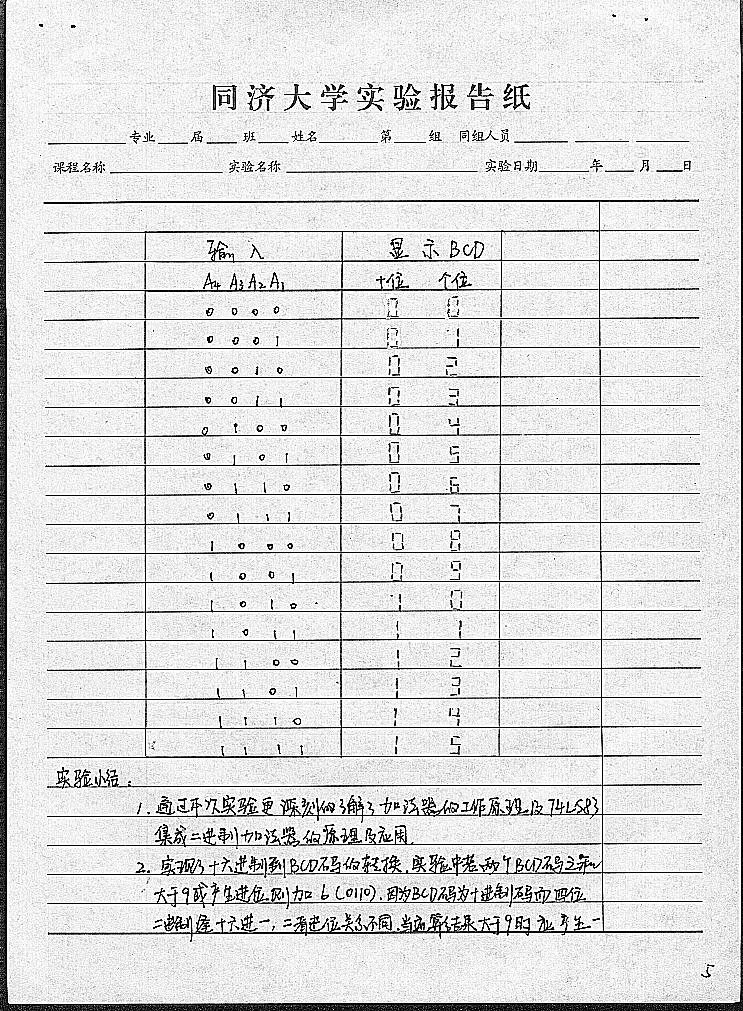 同济大学实验报告纸
专业 届 班 姓名 第 组 同组人员
课程名称 实验名称 实验日期 年 月 日
输入 显示BCD
A4 A3 A2 A1 十位 个位
0 0 0 0 0 0
0 0 0 1 0 1
0 0 1 0 0 2
0 0 1 1 0 3
0 1 0 0 0 4
0 1 0 1 0 5
0 1 1 0 0 6
0 1 1 1 0 7
1 0 0 0 0 8
1 0 0 1 0 9
1 0 1 0 1 0
1 0 1 1 1 1
1 1 0 0 1 2
1 1 0 1 1 3
1 1 1 0 1 4
1 1 1 1 1 5
实验小结:
1. 通过本次实验更深刻的了解了加法器的工作原理及74LS83
集成二进制加法器的原理及应用.
2. 实现了十六进制到BCD码的转换.实验中若两个BCD码之和
大于9或产生进位则加6(0110).因为BCD码为十进制码而四位
二进制逢十六进一,二者进位关系不同.当运算结果大于9时应产生一
5